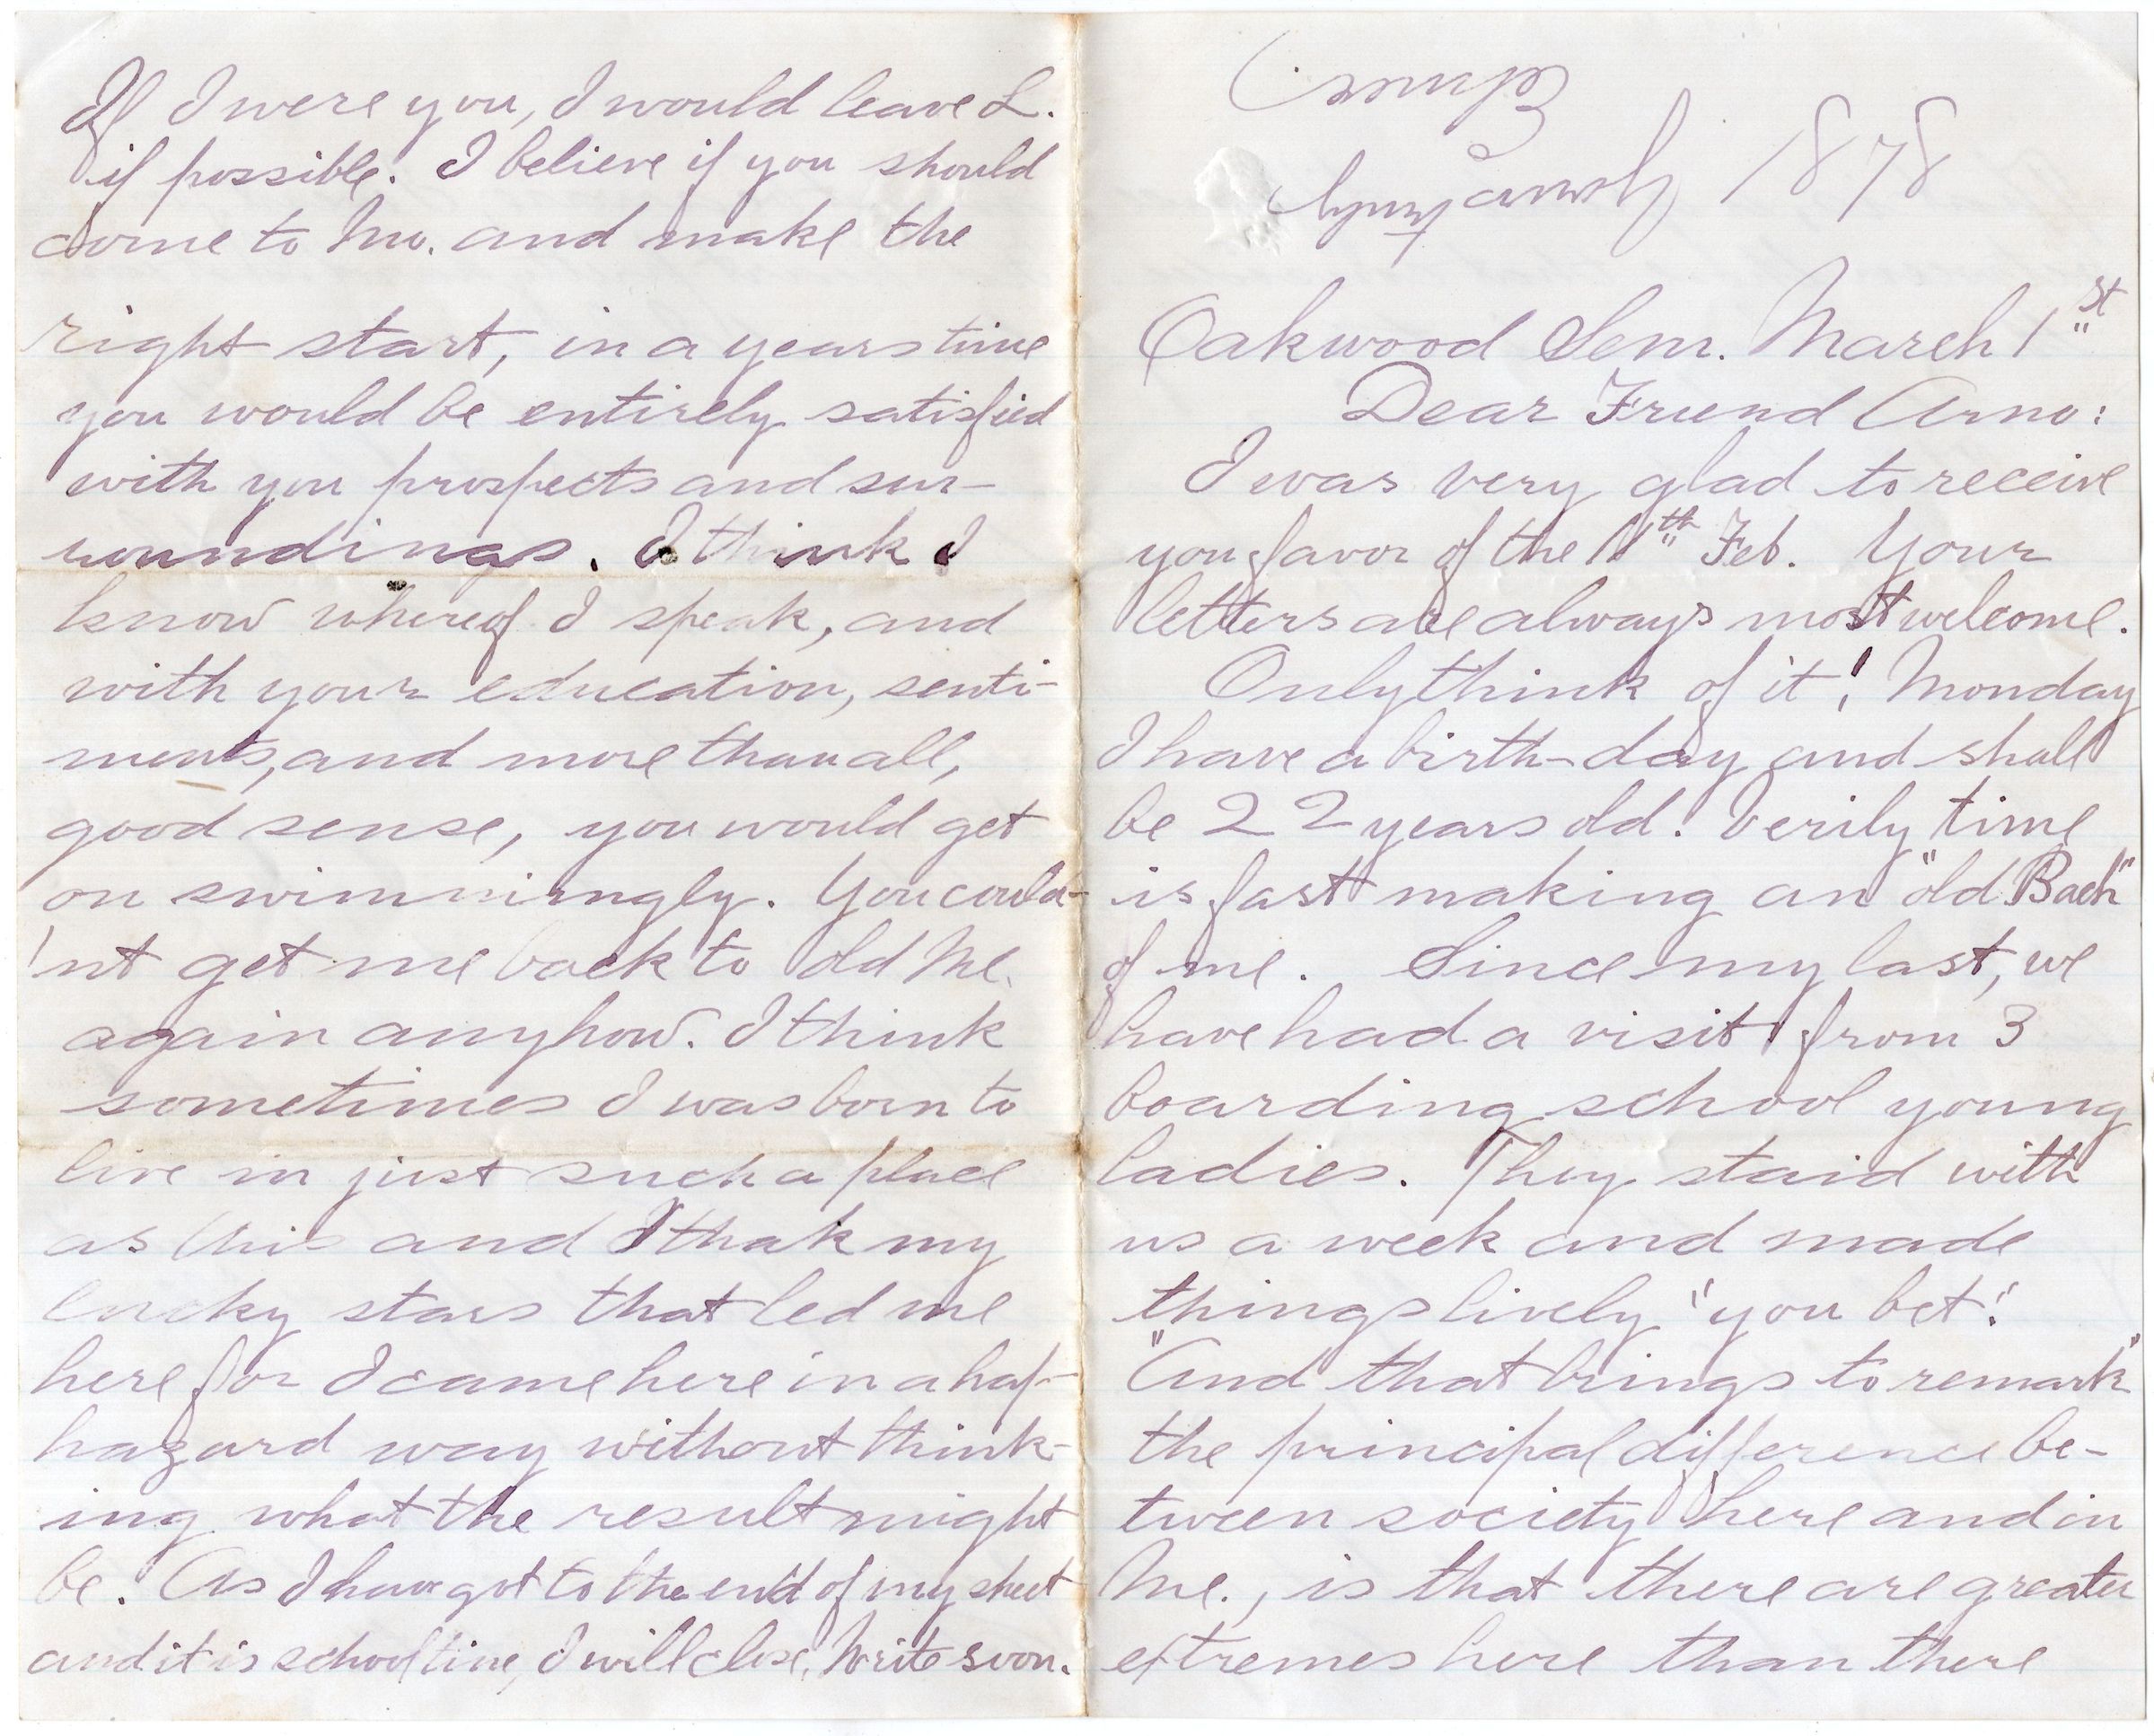 1878
Oakwood Sem. March 1"st
Dear Friend Arno:
I was very glad to receive
you favor of the 11"th Feb. Your
letters are always most welcome.
Only think of it! Monday
I have a birth-day and shall
be 22 years old! Verily time
is fast making an "old Bach"
of me. Since my last, we
have had a visit from 3
boarding school young
ladies. They staid with
us a week and made
things lively "you bet".
"And that brings to remark"
the principal difference be-
tween society here and in
Me., is that there are greater
extremes here than there
If I were you, I would leave L.
if possible. I believe if you should
come to Mo. and make the
right start, in a years time
you would be entirely satisfied
with you prospects and sur-
roundings. I think I
know whereof I speak, and
with your education, senti-
ments, and more than all,
good sense, you would get
on swimmingly. You could-
'nt get me back to old Me.
again anyhow. I think
sometimes I was born to
live in just such a place
as this and I thak my
lucky stars that led me
here for I came here in a hap-
hazard way without think-
ing what the result might
be. As I have got to the end of my sheet
and it is school time, I will close. Write soon.
Yours truly